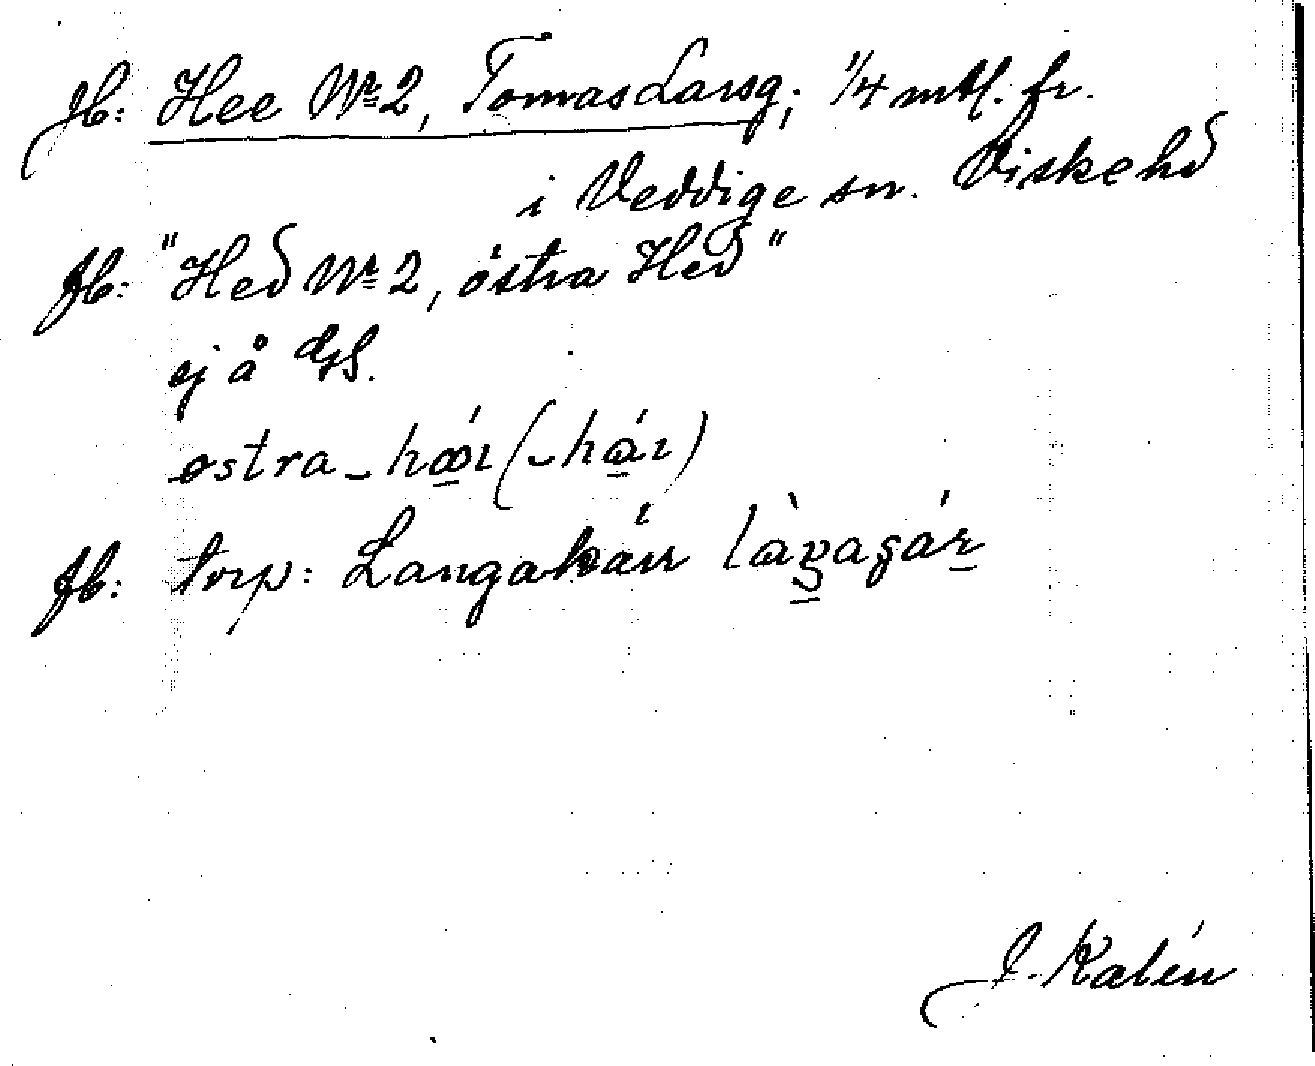 Jb: Hee Nr 2, Tomas Larsg; 1/4 mtl. fr.
i Veddige sn. Viskehd
Jb: "Hed Nr 2, östra Hed"
ej å GS.
ostra_hǽr (-hár)
Jb: torp: Langakärr
J. Kalén